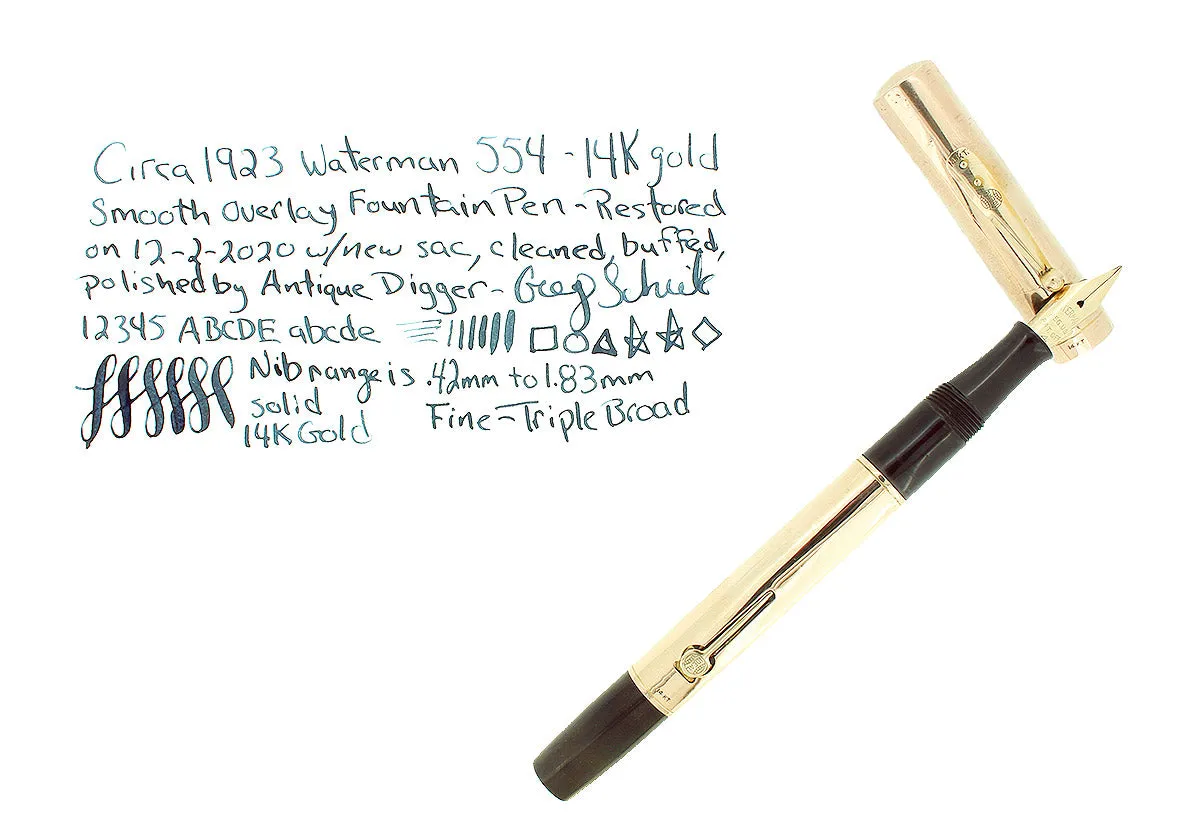 Circa 1923 Waterman 554 - 14K gold
Smooth Overlay Fountain Pen - Restored
on 12-2-2020 w/new sac, cleaned, buffed,
polished by Antique Digger - Greg
12345 ABCDE abcde
Nib range is .42mm to 1.83mm
solid Fine - Triple Broad
14K Gold
14 KT